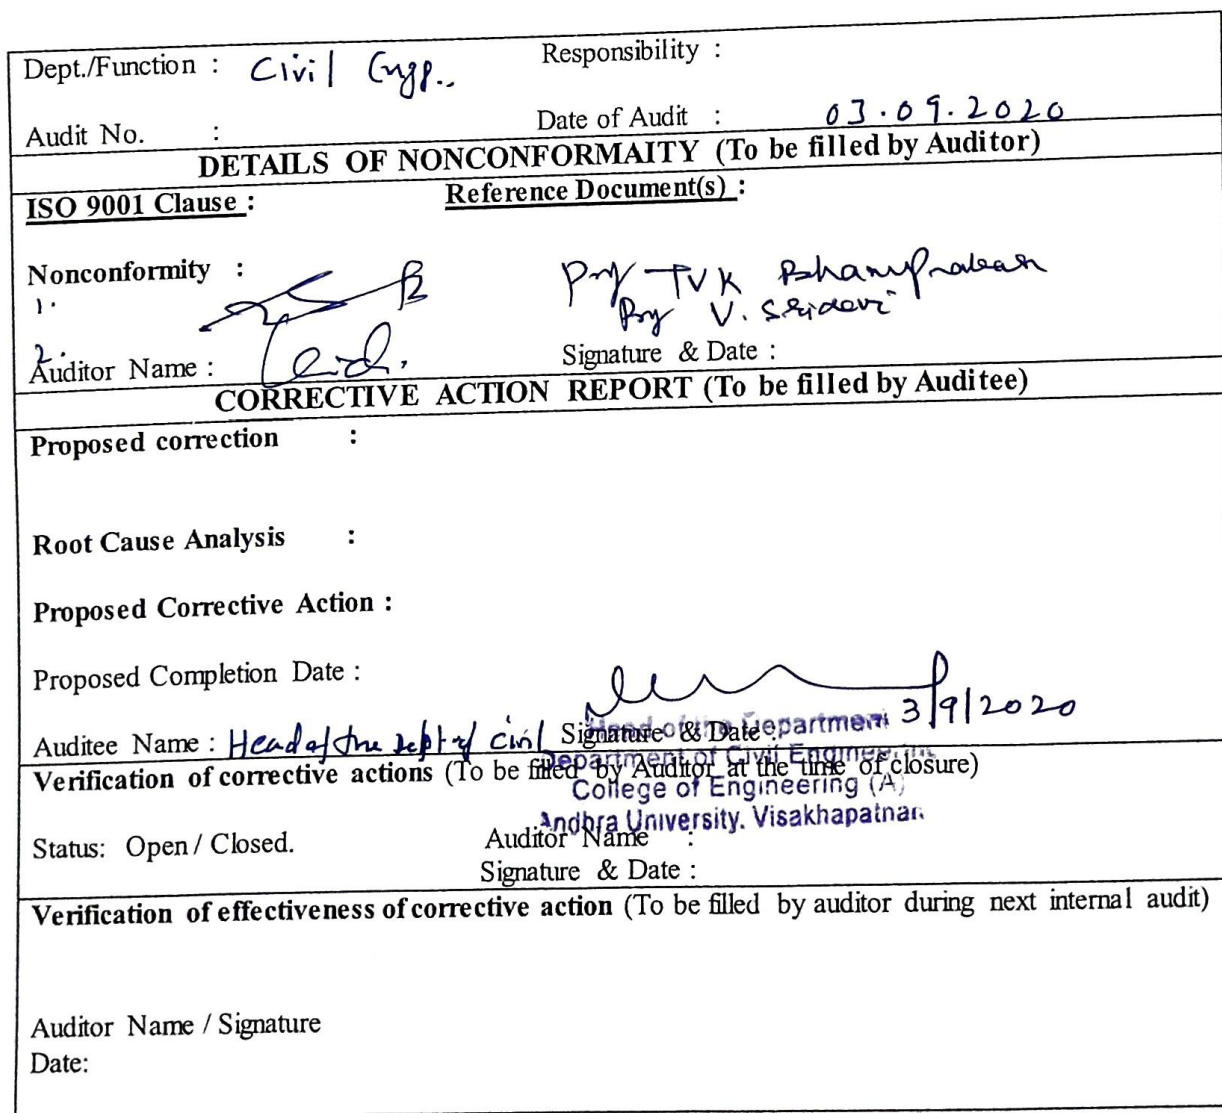 Dept./Function : Civil Engg.. Responsibility :
Audit No. : Date of Audit : 03.09.2020
DETAILS OF NONCONFORMAITY (To be filled by Auditor)
ISO 9001 Clause : Reference Document(s) :
Nonconformity : Prof TVK Bhanuprakash
1. Prof V. Sridevi
2.
Auditor Name : Signature & Date :
CORRECTIVE ACTION REPORT (To be filled by Auditee)
Proposed correction :
Root Cause Analysis :
Proposed Corrective Action :
Proposed Completion Date :
3/9/2020
Auditee Name : Head of the Dept of Civil Signature & Date :
Head of the Department
Department of Civil Engineering
College of Engineering (A)
Andhra University, Visakhapatnam
Verification of corrective actions (To be filled by Auditor at the time of closure)
Status: Open / Closed. Auditor Name :
Signature & Date :
Verification of effectiveness of corrective action (To be filled by auditor during next internal audit)
Auditor Name / Signature
Date: